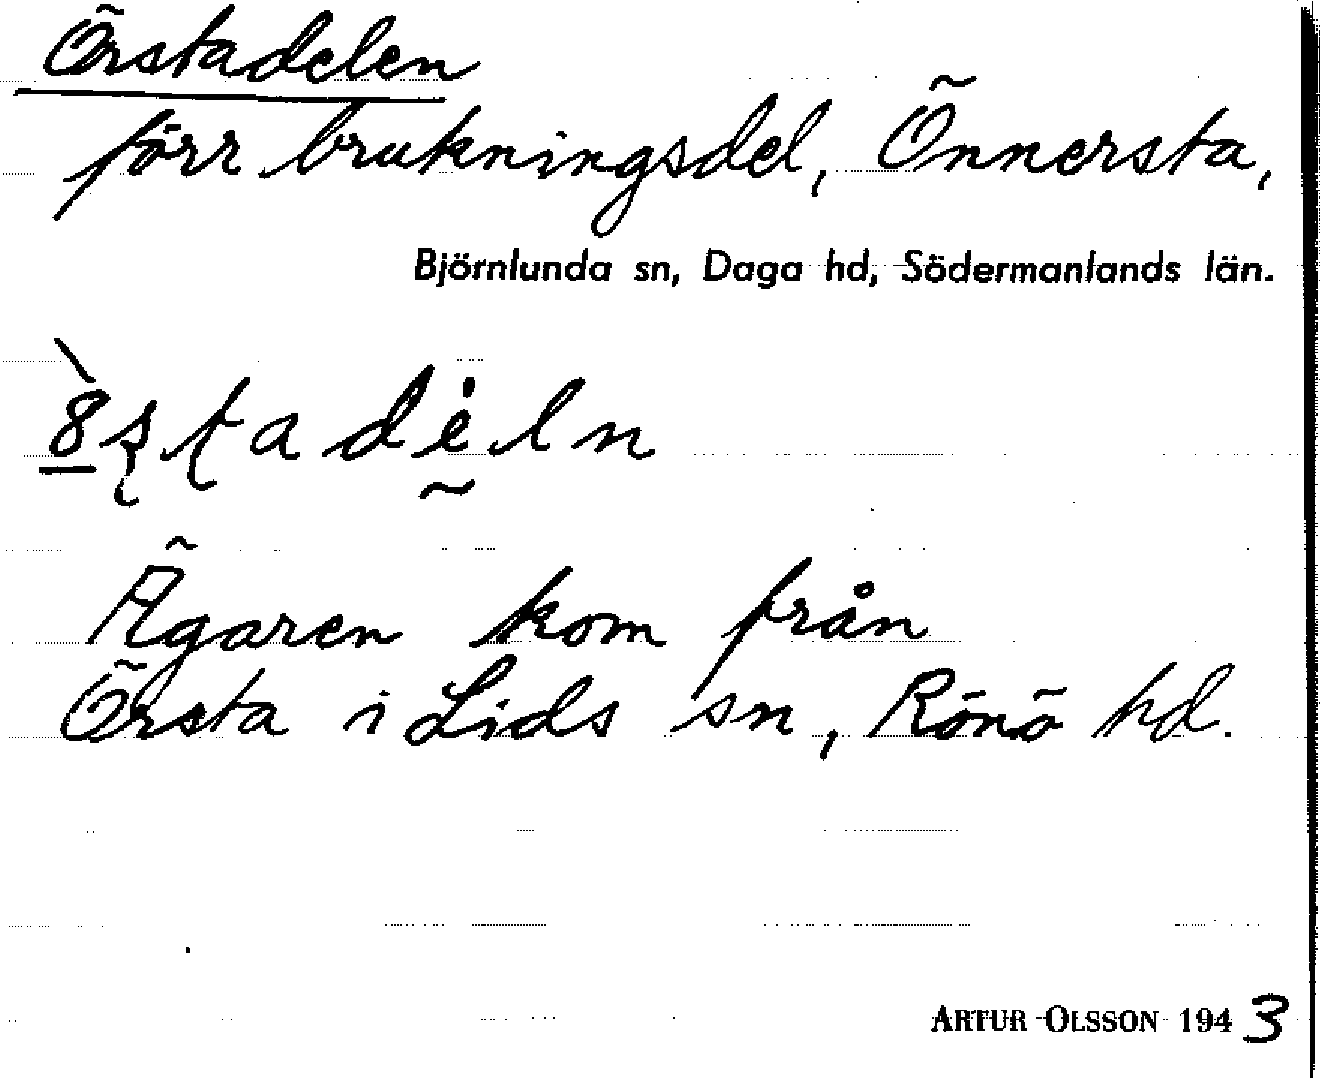 Örstadelen
förr brukningsdel, Önnersta,
Björnlunda sn, Daga hd, Södermanlands län.
Ägaren kom från
Örsta i Lids sn, Rönö hd.
ARTUR OLSSON 1943